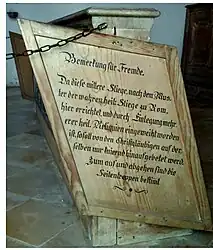 Bemerkung für Fremde.
Da diese mittere Stiege, nach dem Mus-
ter der wahren heil. Stiege zu Rom,
hier errichtet, und durch Einlegung mehr-
erer heil. Reliquien eingeweiht worden
ist, so soll von den Christgläubigen auf der-
selben nur knieend hinaufgebetet werd.
Zum auf und abgehen sind die
Seitentreppen bestimt